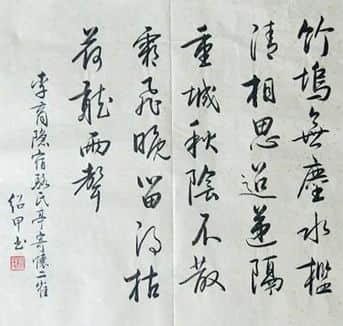 竹塢無塵水檻
清相思迢遞隔
重城秋陰不散
霜飛晚留得枯
荷聽雨聲
李商隐宿駱氏亭寄懷二崔
紹甲书